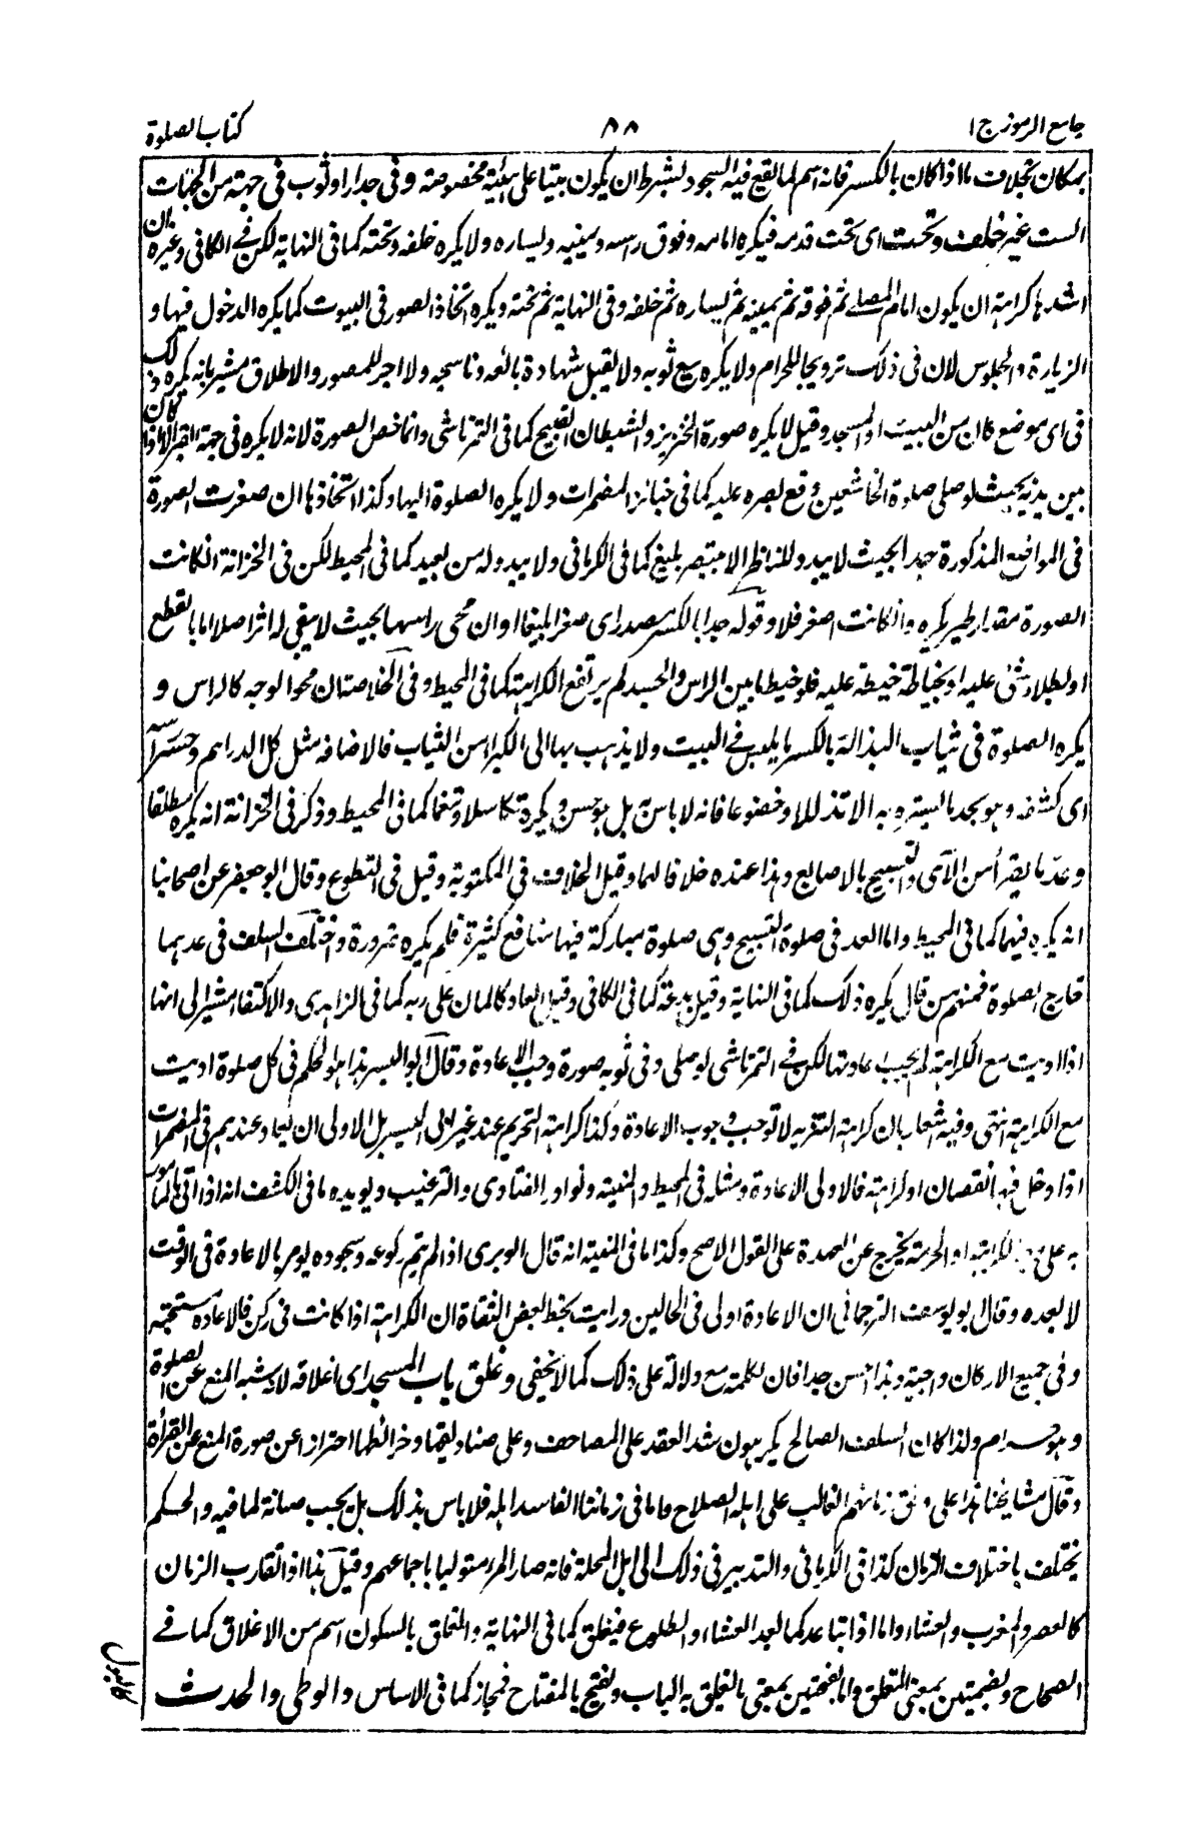 جامع الرموز ج ا
٨٨
كتاب الصلوة
بمكان بخلاف ما اذا كان بالكسر فانه اسم لما يقع فيه السجود بشرط ان يكون بيتا على هيئة مخصوصة وفى جدار او ثوب فى جهة من الجهات
الست غير خلف وتحت اى تحت قدمه فيكره امامه وفوق راسه ويمينه ويساره ولا يكره خلفه وتحته كما فى النهاية لكن فى الكافى وغيره ان
اشدها كراهة ان يكون امام المصلى ثم فوقه ثم يمينه ثم يساره ثم خلفه وفى النهاية ثم تحته ويكره اتخاذ الصور فى البيوت كما يكره الدخول فيها و
الزيارة والجلوس لان فى ذلك ترويجا للحرام ولا يكره بيع ثوبه ولا يقبل شهادة بائعه وناسجه ولا اجر للمصور والاطلاق مشير بانه يكره ذلك
فى اى موضع كان من البيت او المسجد وقيل لا يكره صورة الخنزير والشيطان القبيح كما فى التمرتاشى وانما خص الصورة لانه لا يكره فى جهة القبر الا اذا كان
بين يديه بحيث لو صلى صلوة الخاشعين وقع بصره عليه كما فى جنائز المضمرات ولا يكره الصلوة اليها وكذا اتخاذها ان صغرت الصورة
فى المواضع المذكورة جدا بحيث لا يبدو للناظر الا بتبصر بليغ كما فى الكرمانى ولا يبدو له من بعيد كما فى المحيط لكن فى الخزانة ان كانت
الصورة مقدار طير يكره وان كانت اصغر فلا وقوله جدا بالكسر مصدر اى صغرا بليغا او ان محى راسها بحيث لا يبقى له اثر اصلا اما بالقطع
او بطلاء شئ عليه او بخياطة خيطة عليه فلو خيط ما بين الراس والجسد لم يرتفع الكراهة كما فى المحيط وفى الخلاصة ان محو الوجه كالراس و
يكره الصلوة فى ثياب البذالة بالكسر ما يلبس فى البيت ولا يذهب بها الى الكبراء من الثياب فالاضافة مثل كل الدراهم وحسر راسه
اى كشفه وهو يجد ما يستره به الا تذللا وخضوعا فانه لا باس به بل هو حسن ويكره تكاسلا وتنعما كما فى المحيط وذكر فى الخزانة انه يكره مطلقا
وعد ما يقرأ من الآى والتسبيح بالاصابع وهذا عنده خلافا لهما وقيل الخلاف فى المكتوبة وقيل فى التطوع وقال ابو جعفر عن اصحابنا
انه يكره فيهما كما فى المحيط واما العد فى صلوة التسبيح وهى صلوة مباركة فيها منافع كثيرة فلم يكره ضرورة واختلف السلف فى عدهما
خارج الصلوة فمنهم من قال يكره ذلك كما فى النهاية وقيل بدعة كما فى الكافى وقيل العاد كالمان على ربه كما فى الزاهدى والاكتفاء مشير الى انها
اذا اديت مع الكراهة لم يجب اعادتها لكن فى التمرتاشى لو صلى وفى ثوبه صورة وجب الاعادة وقال ابو اليسر هذا هو الحكم فى كل صلوة اديت
مع الكراهة انتهى وفيه اشعار بان كراهة التنزيه لا توجب وجوب الاعادة وكذا كراهة التحريم عند غير ابى اليسر بل الاولى ان يعاد عندهم وفى المضمرات
اذا دخل فيها نقصان او كراهة فالاولى الاعادة ومثله فى المحيط والمنية ونوادر الفتاوى والترغيب ويويده ما فى الكشف انه اذا اتى بالمأمور
به على الكراهة او الحرمة يخرج عن العهدة على القول الاصح وكذا ما فى المنية انه قال الوبرى اذا لم يتم ركوعه وسجوده يومر بالاعادة فى الوقت
لا بعده وقال ابو يوسف الترجمانى ان الاعادة اولى فى الحالين ورايت بخط بعض الثقاة ان الكراهة اذا كانت فى ركن فالاعادة مستحبة
وفى جميع الاركان واجبة وهذا احسن جدا فان لكلمة مع دلالة على ذلك كما لا يخفى وغلق باب المسجد اى اغلاقه لانه يشبه المنع عن الصلوة
وهو حرام ولذا كان السلف الصالح يكرهون شد العقد على المصاحف وعلى صناديقها وخرائطها احترازا عن صورة المنع عن القرأة
وقال مشايخنا هذا على وفق زمانهم الغالب على اهله الصلاح واما فى زماننا الفاسد اهله فلا باس بذلك بل يجب صيانة لما فيه والحكم
يختلف باختلاف الزمان كذا فى الكرمانى والتدبير فى ذلك الى اهل المحلة فانه صار المرء متوليا باجماعهم وقيل هذا اذا تقارب الزمان
كالعصر والمغرب والعشاء واما اذا تباعد كما بعد العشاء والطلوع فيغلق كما فى النهاية والغلق بالسكون اسم من الاغلاق كما فى
الصحاح وبضمتين بمعنى المغلق واما بفتحتين بمعنى ما يغلق به الباب ويفتح بالمفتاح فمجاز كما فى الاساس والوطى والحدث
كالبول